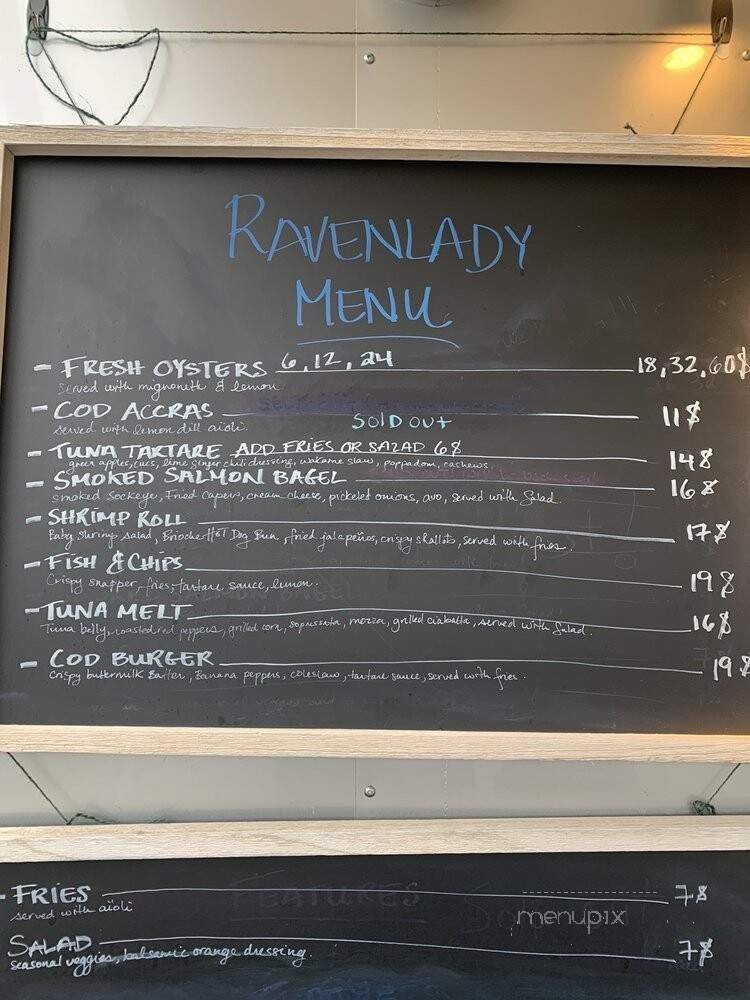 RAVENLADY
MENU
- FRESH OYSTERS 6, 12, 24 18, 32, 60$
served with mignoneth & lemon
- COD ACCRAS 11$
served with lemon dill aioli.
SOLD OUT
- TUNA TARTARE ADD FRIES OR SALAD 6$ 14$
green apples, cucs, lime ginger chili dressing, wakame slaw, poppadom, cashews
- SMOKED SALMON BAGEL 16$
smoked sockeye, Fried Capers, cream cheese, pickeled onions, avo, served with Salad.
- SHRIMP ROLL 17$
Baby shrimp salad, Brioche Hot Dog Bun, fried jalapeños, crispy shallots, served with fries.
- FISH & CHIPS 19$
Crispy snapper, fries, tartare sauce, lemon.
- TUNA MELT 16$
Tuna belly, roasted red peppers, grilled corn, sopressata, mozza, grilled ciabatta, served with Salad.
- COD BURGER 19$
Crispy buttermilk Batter, Banana peppers, coleslaw, tartare sauce, served with fries.
FEATURES
- FRIES 7$
served with aïoli
menupix
SALAD 7$
seasonal veggies, balsamic orange dressing.